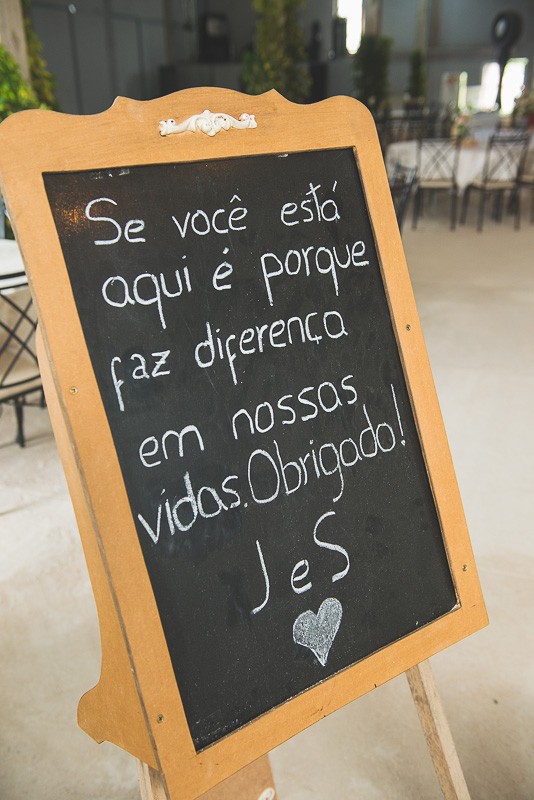 Se você está
aqui é porque
faz diferença
em nossas
vidas. Obrigado!
J e S